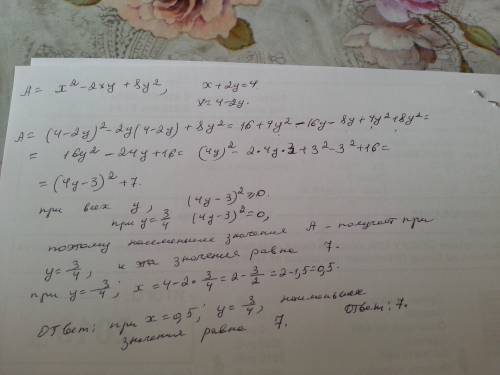 A = x² - 2xy + 8y², x + 2y = 4
x = 4 - 2y.
A = (4 - 2y)² - 2y(4 - 2y) + 8y² = 16 + 4y² - 16y - 8y + 4y² + 8y² =
= 16y² - 24y + 16 = (4y)² - 2·4y·3 + 3² - 3² + 16 =
= (4y - 3)² + 7.
при всех y, (4y - 3)² ≥ 0.
при y = 3/4 (4y - 3)² = 0,
поэтому наименьшие значения A - получает при
y = 3/4, и эта значения равна 7.
при y = 3/4; x = 4 - 2·3/4 = 2 - 3/2 = 2 - 1,5 = 0,5.
Ответ: при x = 0,5; y = 3/4, наименьшее
значения равна 7. Ответ: 7.